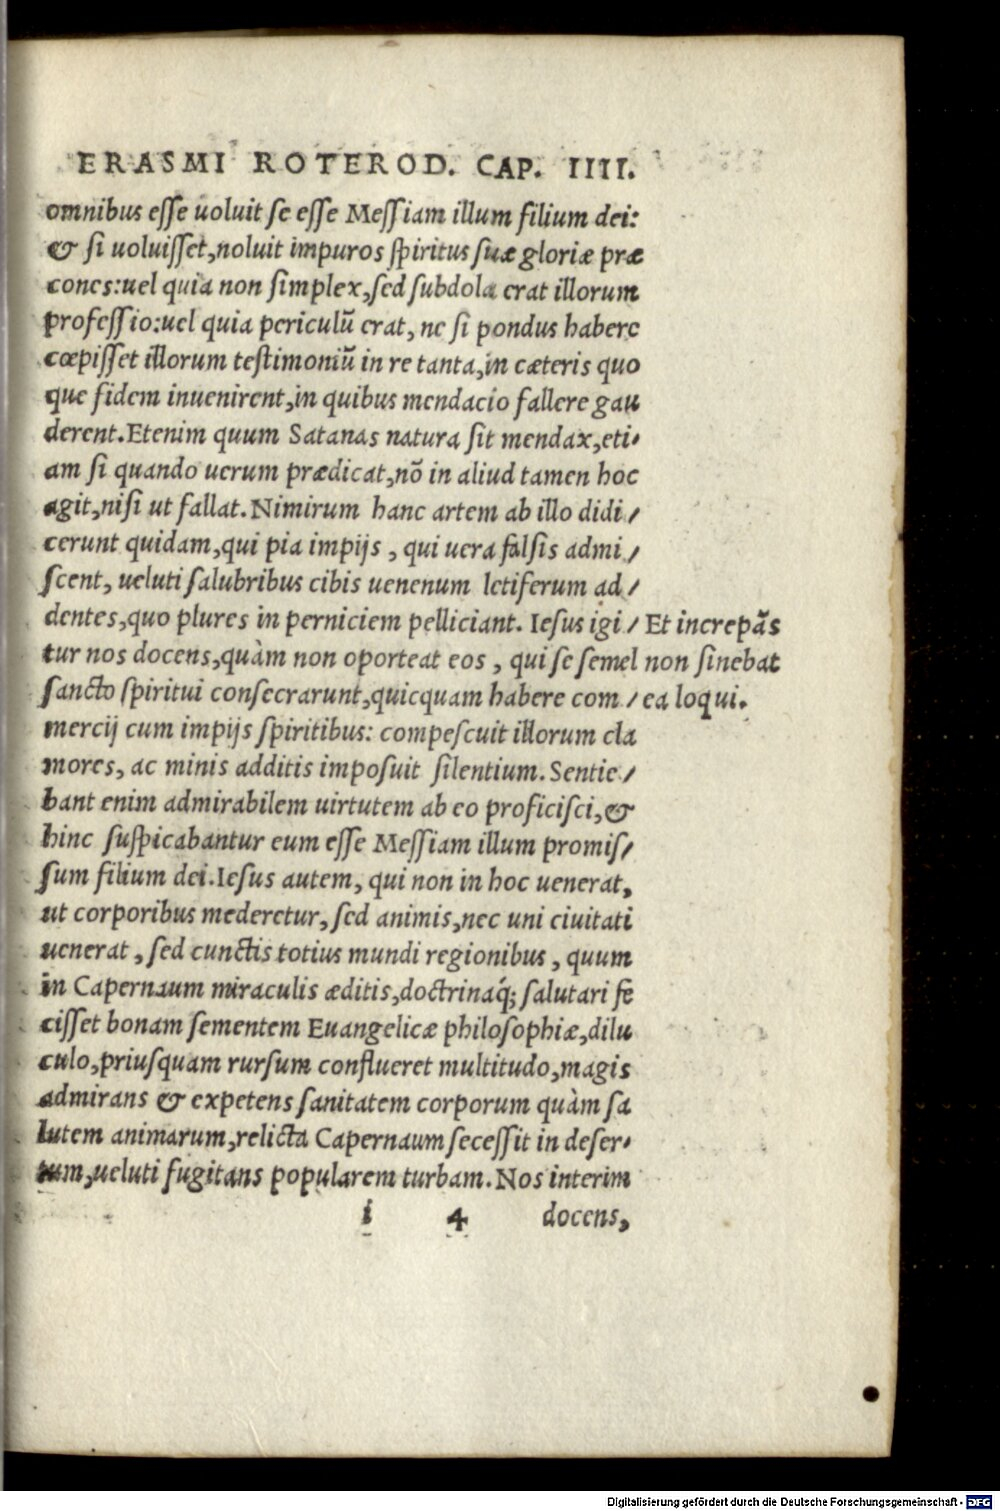 ERASMI ROTEROD. CAP. IIII.
omnibus esse uoluit se esse Messiam illum filium dei:
& si uoluisset, noluit impuros spiritus suæ gloriæ præ
cones: uel quia non simplex, sed subdola erat illorum
professio: uel quia periculū erat, ne si pondus habere
cœpisset illorum testimoniū in re tanta, in cæteris quo
que fidem inuenirent, in quibus mendacio fallere gau
derent. Etenim quum Satanas natura sit mendax, eti-
am si quando uerum prædicat, nō in aliud tamen hoc
agit, nisi ut fallat. Nimirum hanc artem ab illo didi/
cerunt quidam, qui pia impijs, qui uera falsis admi/
scent, ueluti salubribus cibis uenenum letiferum ad/
dentes, quo plures in perniciem pelliciant. Iesus igi/
tur nos docens, quàm non oporteat eos, qui se semel
sancto spiritui consecrarunt, quicquam habere com/
mercij cum impijs spiritibus: compescuit illorum cla
mores, ac minis additis imposuit silentium. Sentie/
bant enim admirabilem uirtutem ab eo proficisci, &
hinc suspicabantur eum esse Messiam illum promis/
sum filium dei. Iesus autem, qui non in hoc uenerat,
ut corporibus mederetur, sed animis, nec uni ciuitati
uenerat, sed cunctis totius mundi regionibus, quum
in Capernaum miraculis æditis, doctrinaq́; salutari fe
cisset bonam sementem Euangelicæ philosophiæ, dilu
culo, priusquam rursum conflueret multitudo, magis
admirans & expetens sanitatem corporum quàm sa
lutem animarum, relicta Capernaum secessit in deser-
tum, ueluti fugitans popularem turbam. Nos interim
i 4 docens,
Et increpās
non sinebat
ea loqui.
Digitalisierung gefördert durch die Deutsche Forschungsgemeinschaft - DFG